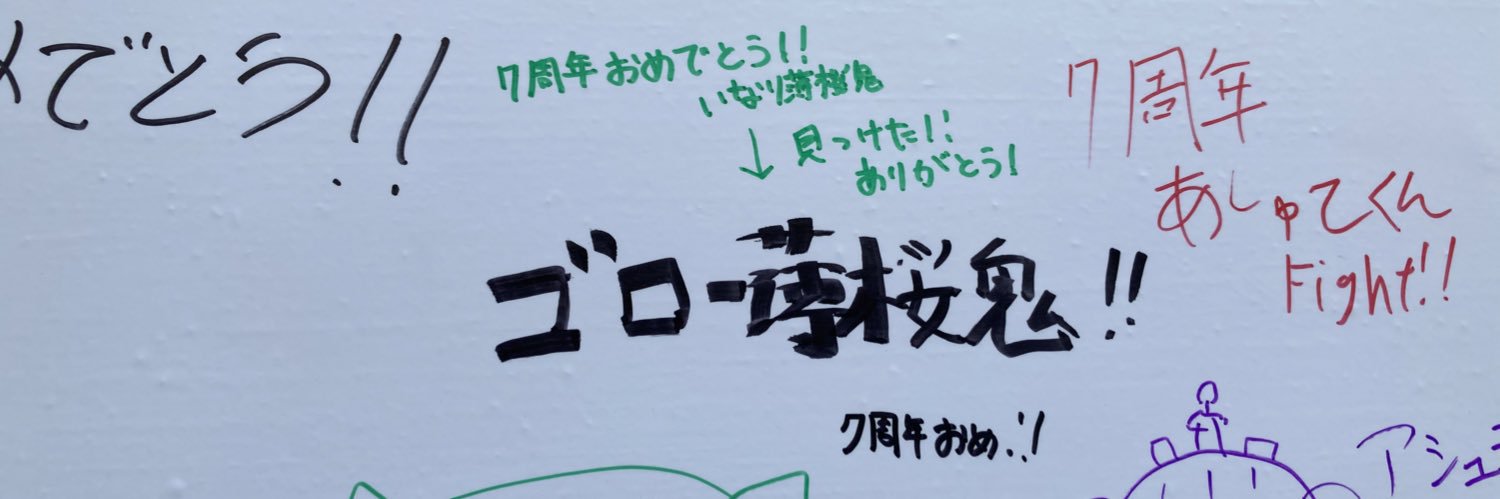 メでとう!!
7周年おめでとう!!
いなり薄桜鬼
↓見っけた!!
ありがとう!
ゴロー薄桜鬼!!
7周年
あしゅてくん
Fight!!
7周年おめ!!
アシュ